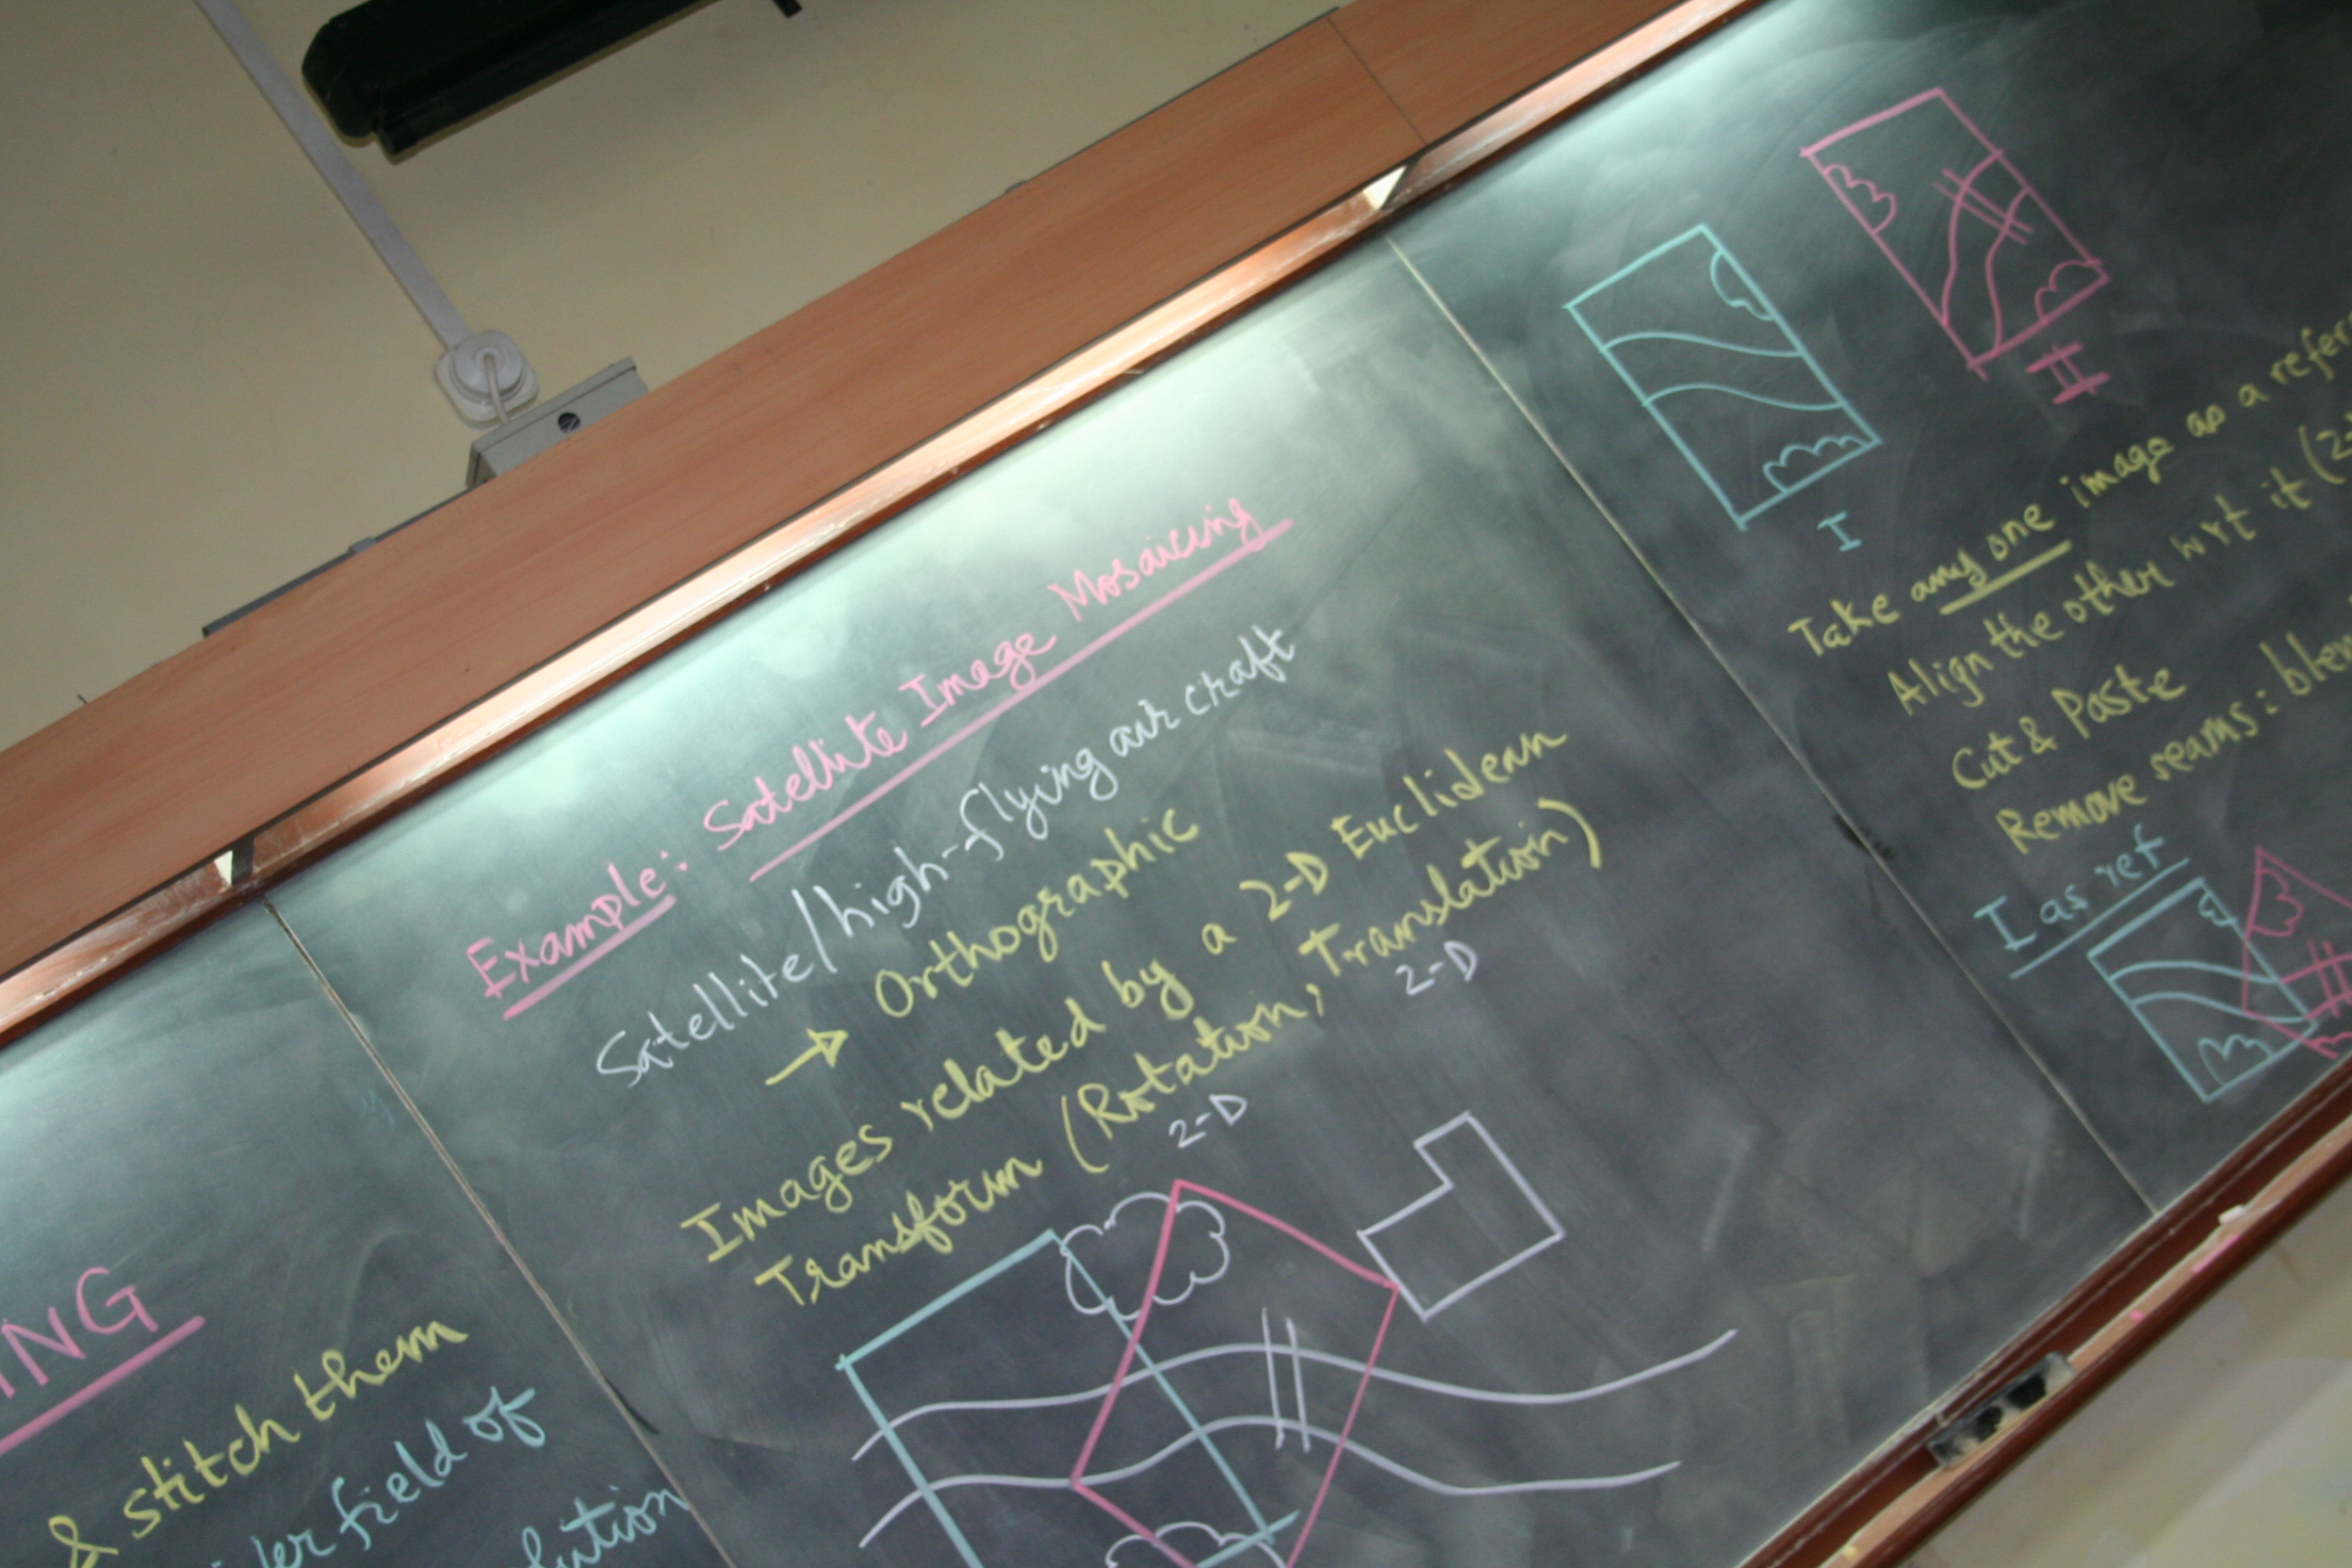 & stitch them
field of
Example: Satellite Image Mosaicing
Satellite/high-flying aircraft
→ Orthographic
Images related by a 2-D Euclidean
Transform (Rotation, Translation)
2-D 2-D
I
II
Take any one image as a
Align the other wrt it
Cut & Paste
Remove seams:
I as ref